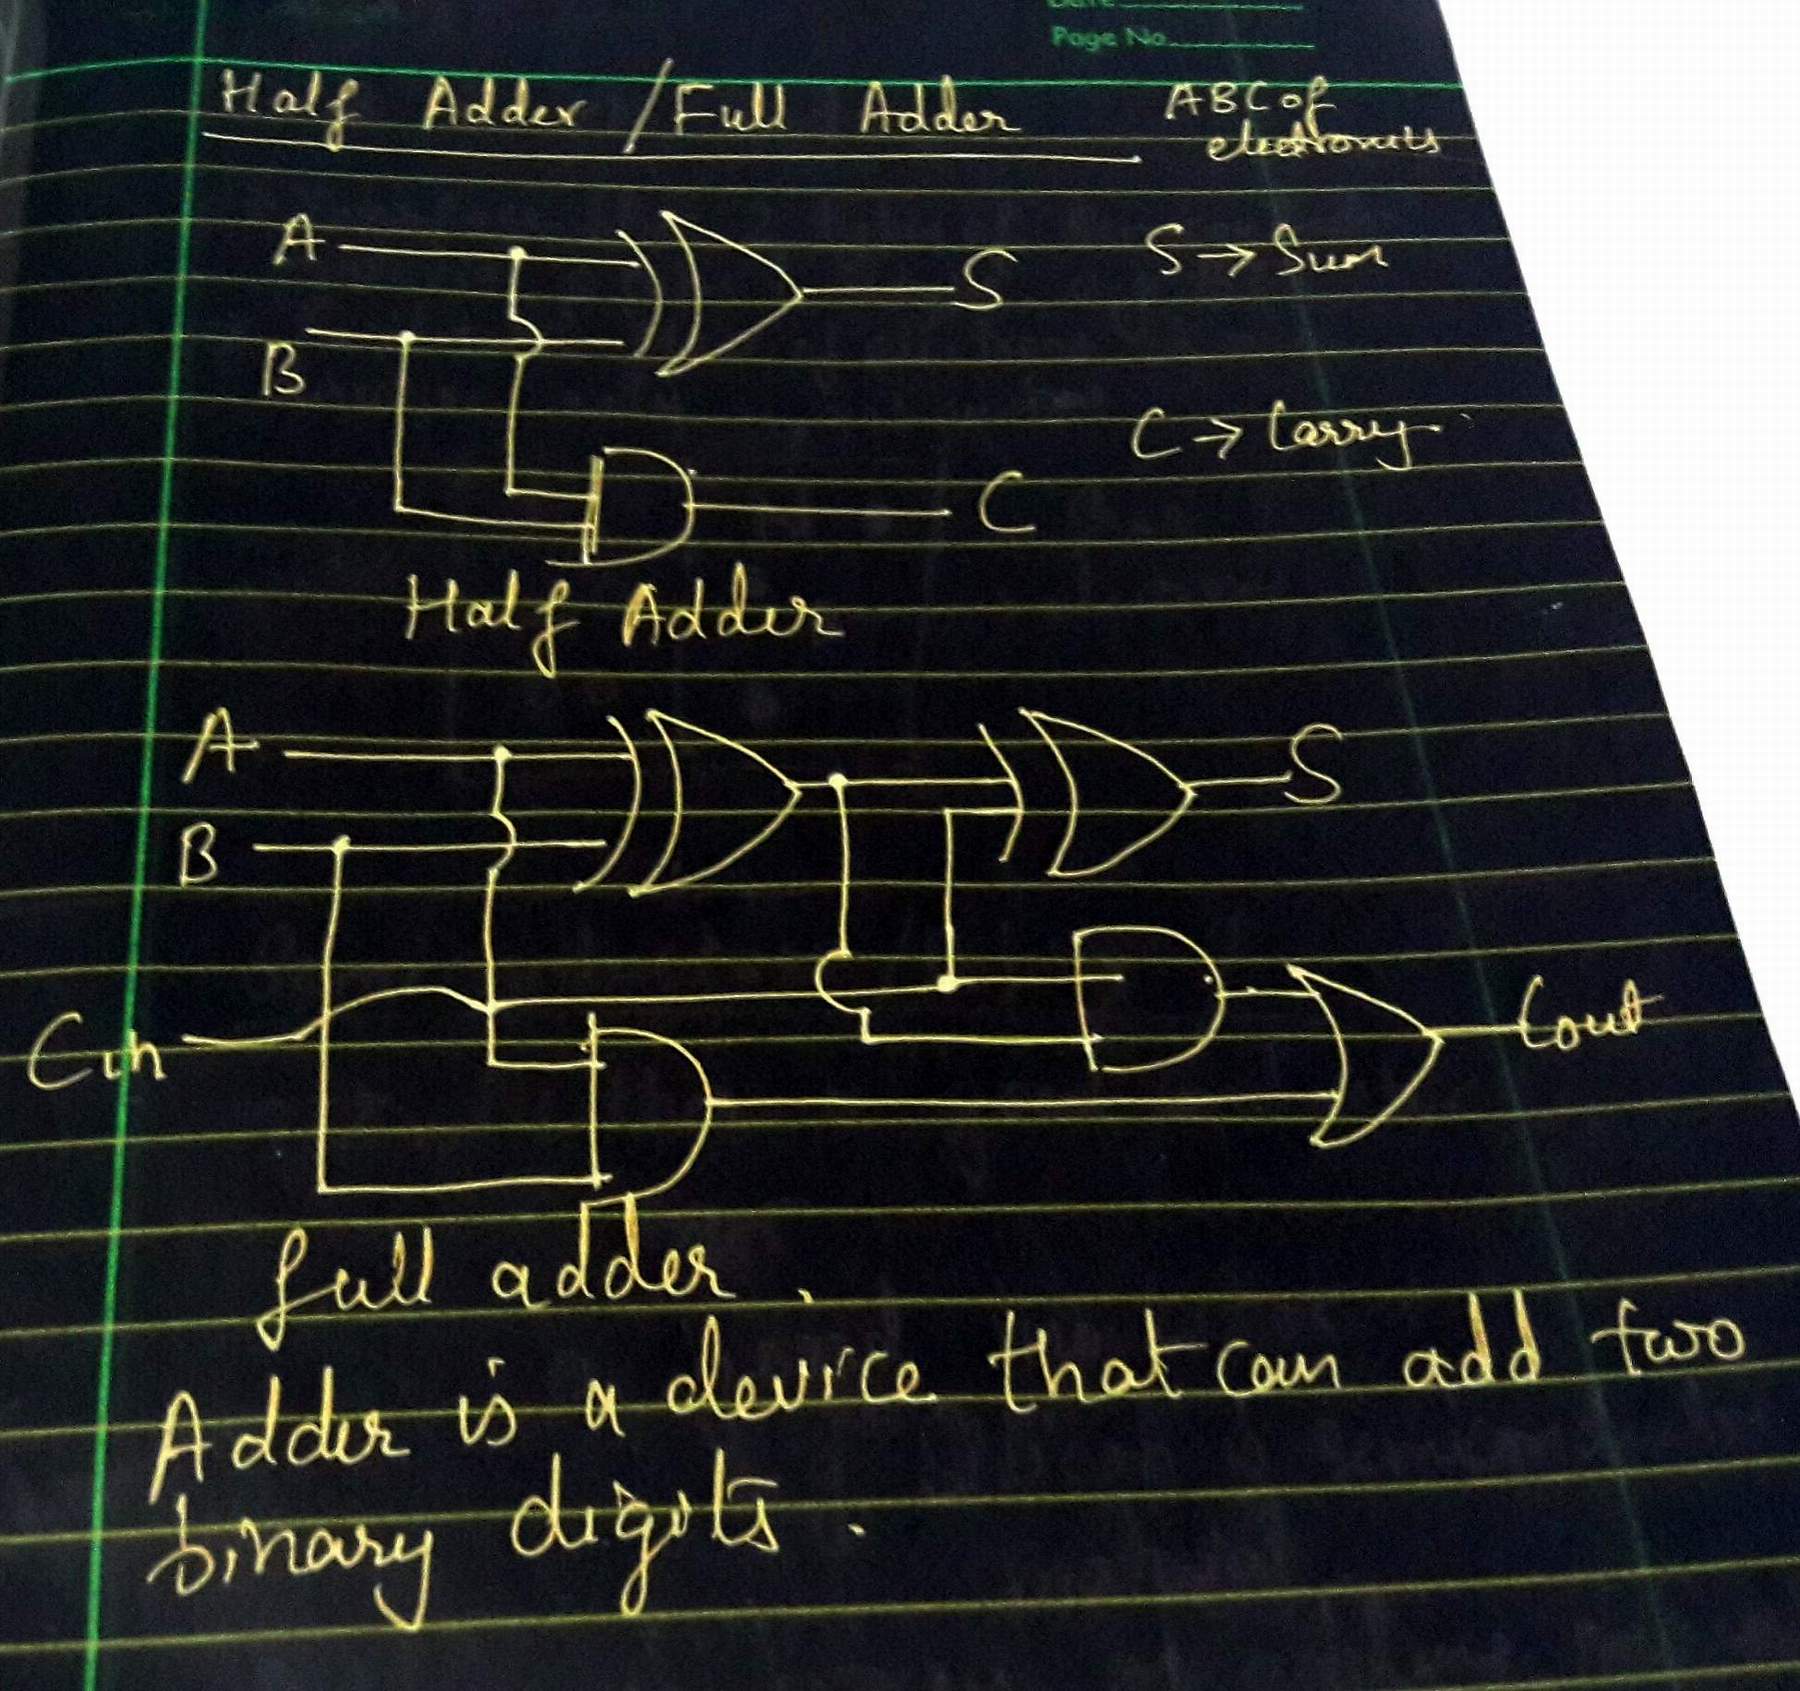 Date
Page No.
Half Adder / Full Adder
ABC of
electronics
A
S
S → Sum
B
C → Carry.
C
Half Adder
A
S
B
Cin
Cout
full adder.
Adder is a device that can add two
binary digits.